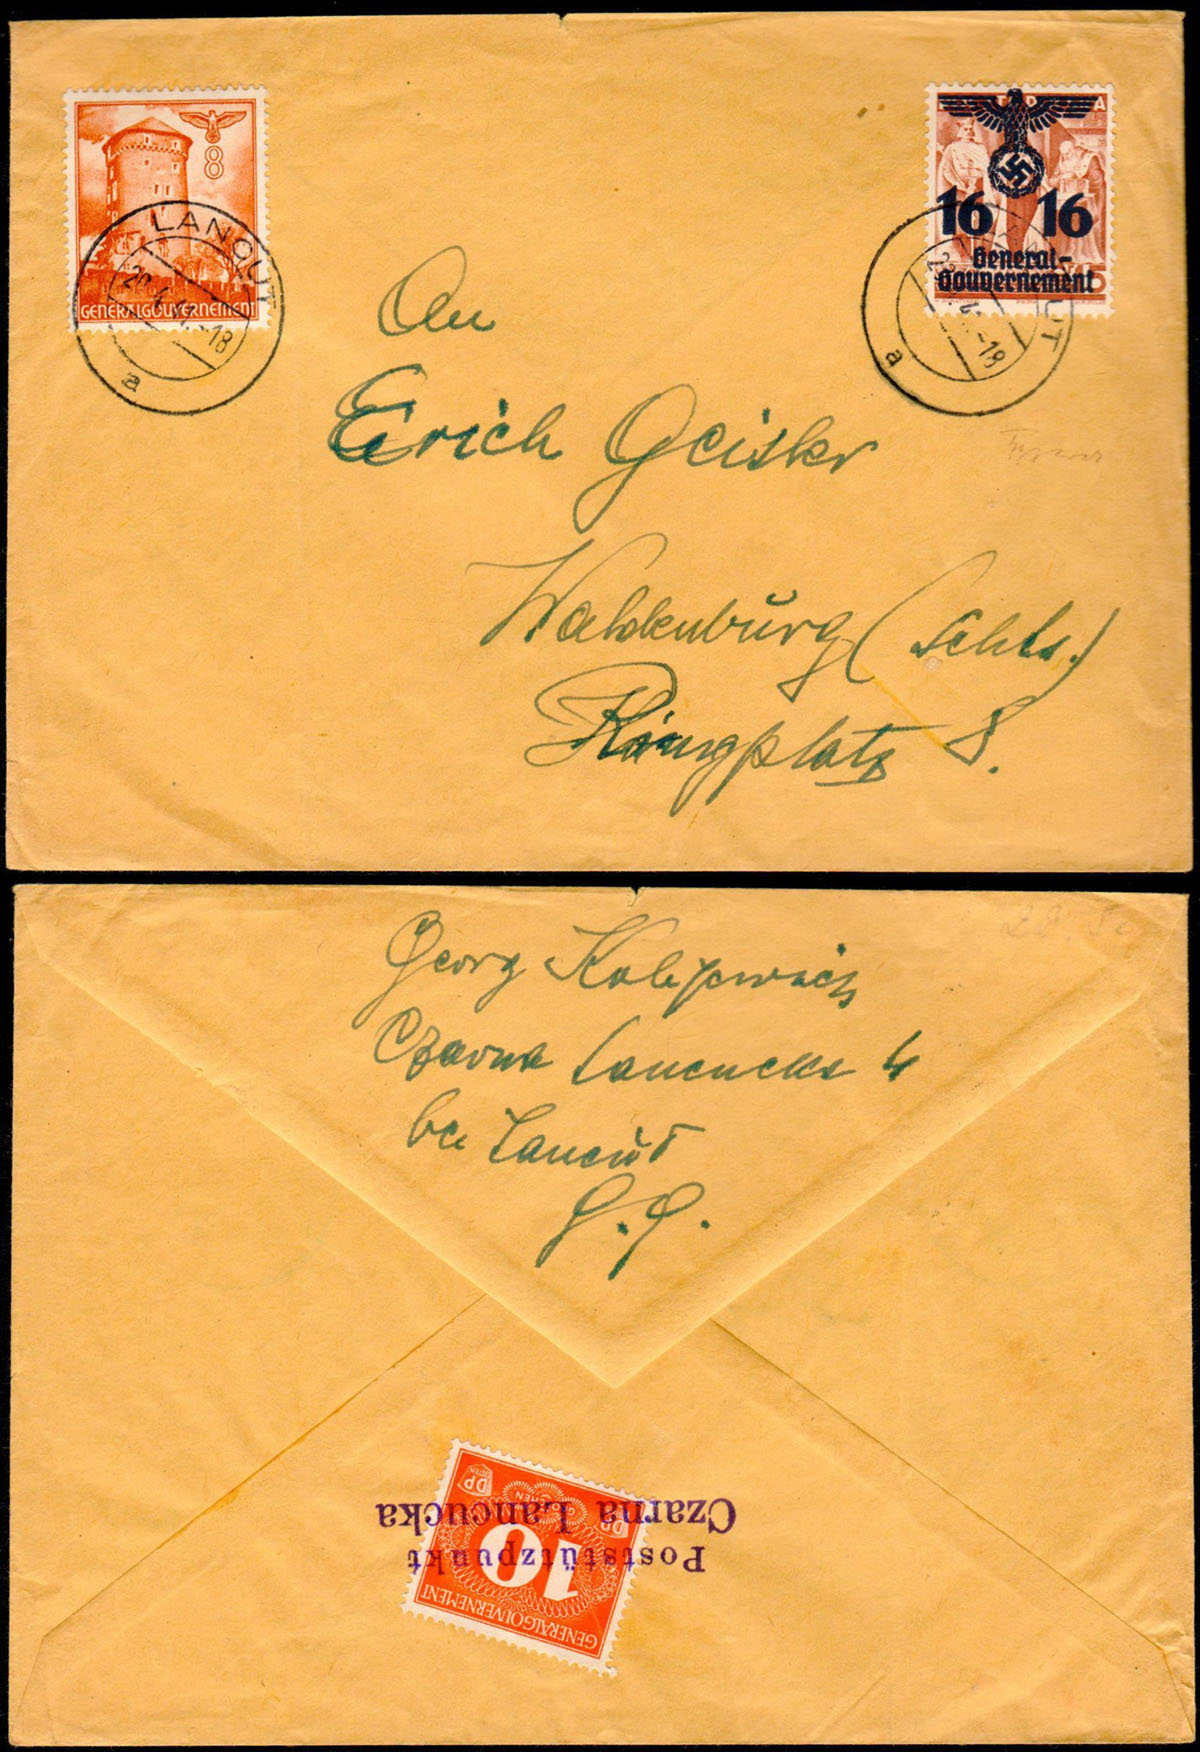 8
GENERALGOUVERNEMENT
LANCUT
29.4.41.-18
a
16 16
General-
Gouvernement
LANCUT
29.4.41.-18
a
An
Erich Geisler
Waldenburg (Schls.)
Ringplatz 8.
Georg
Czarna Lancucka 4
bei Lancut
G. G.
Poststützpunkt
Czarna Lancucka
GENERALGOUVERNEMENT
10
GROSCHEN
DP OSTEN
DP